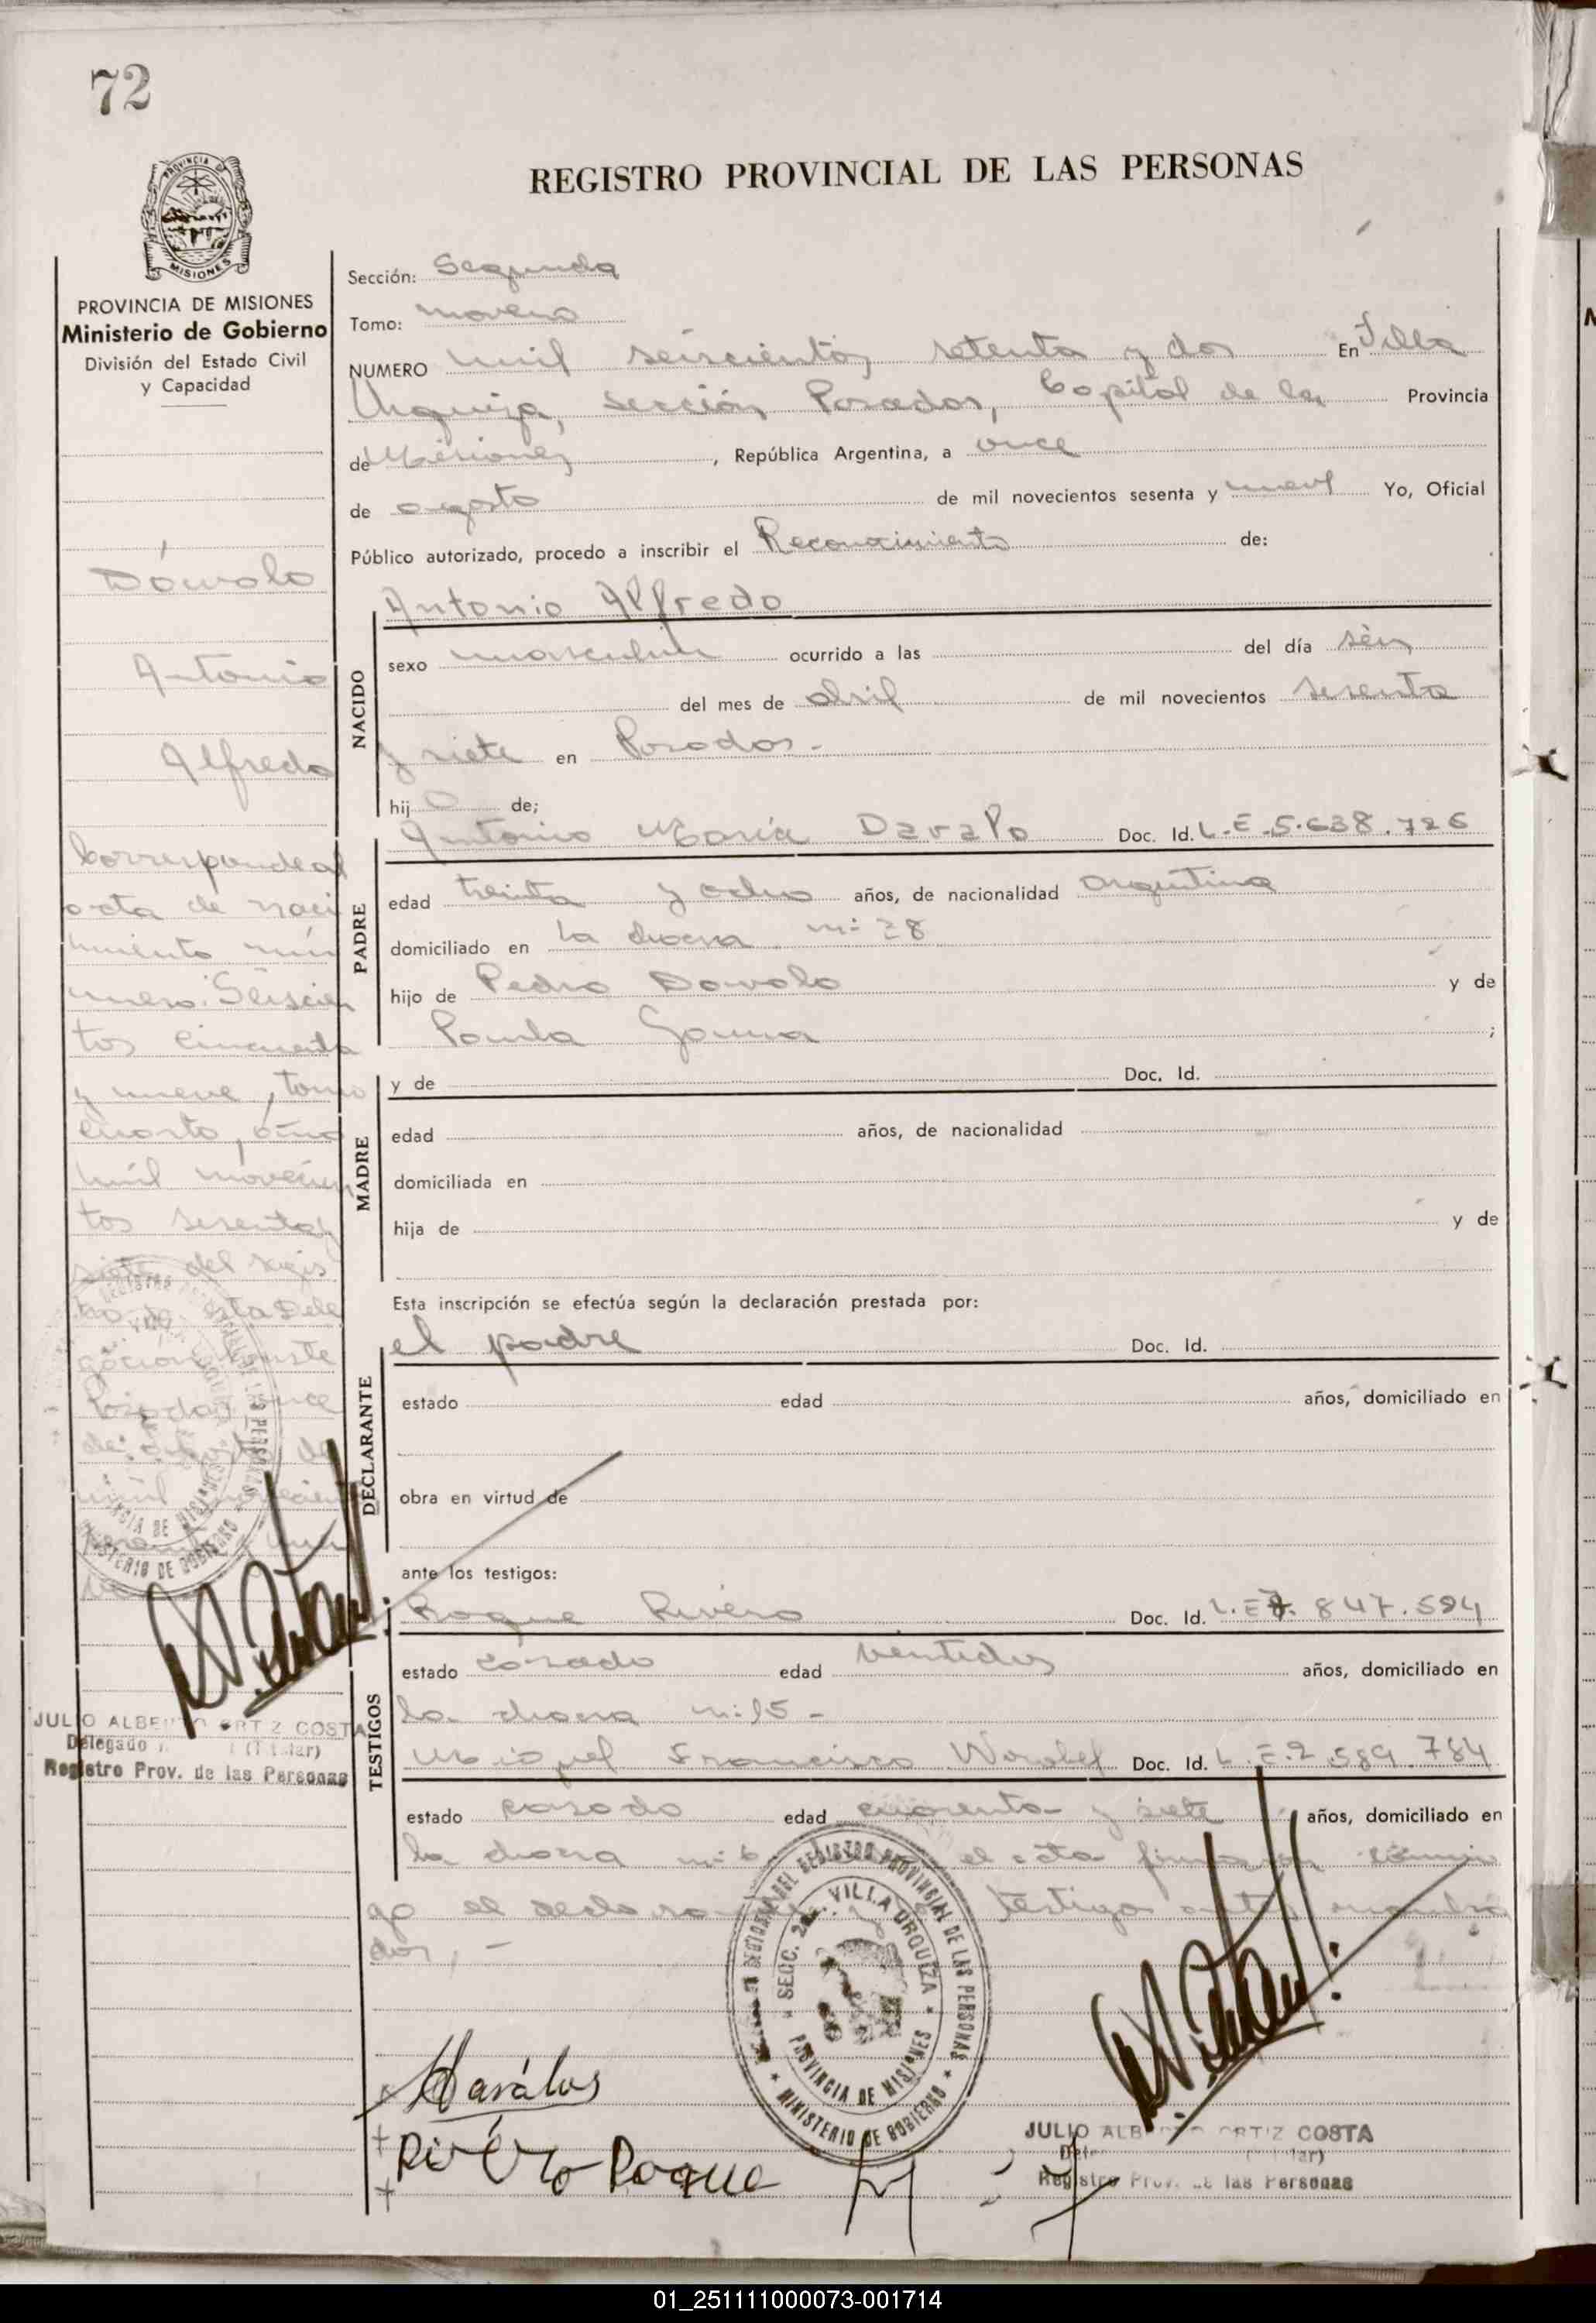 72
REGISTRO PROVINCIAL DE LAS PERSONAS
PROVINCIA DE MISIONES
Ministerio de Gobierno
División del Estado Civil
y Capacidad
Dávalo
Antonio
Alfredo
Corresponde al
acta de naci
miento nú
mero: Seiscien
tos cincuenta
y nueve, tomo
cuarto, año
mil novecien
tos sesenta y
siete del regis
tro de esta Dele
gación. Conste
Posadas, once
de agosto de
mil novecien
JULIO ALBERTO ORTIZ COSTA
Delegado (Titular)
Registro Prov. de las Personas
Sección: Segunda
Tomo: noveno
NUMERO mil seiscientos setenta y dos En Villa
Urquiza, sección Posadas, Capital de la Provincia
de Misiones, República Argentina, a once
de agosto de mil novecientos sesenta y nueve Yo, Oficial
Público autorizado, procedo a inscribir el Reconocimiento de:
Antonio Alfredo
NACIDO
sexo masculino ocurrido a las del día seis
del mes de abril de mil novecientos sesenta
y siete en Posadas.-
hijo de;
PADRE
Antonio María Davalo Doc. Id. L.E. 5.638.726
edad treinta y ocho años, de nacionalidad argentina
domiciliado en la chacra nº 28
hijo de Pedro Davalo y de
Paula ;
MADRE
y de Doc. Id.
edad años, de nacionalidad
domiciliada en
hija de y de
Esta inscripción se efectúa según la declaración prestada por:
DECLARANTE
el padre Doc. Id.
estado edad años, domiciliado en
obra en virtud de
ante los testigos:
TESTIGOS
Roque Rivero Doc. Id. L.E. 7. 847.594
estado casado edad ventidos años, domiciliado en
la chacra nº 15 -
Miguel Francisco Doc. Id. L.E. 2.589.784
estado casado edad cuarenta y siete años, domiciliado en
la chacra nº 6 el acta firmaron conmi
go el declarante y los testigos antes nombra
dos, -
DEL REGISTRO PROVINCIAL DE LAS PERSONAS
SECC. 2a. VILLA URQUIZA
PROVINCIA DE MISIONES
MINISTERIO DE GOBIERNO
Rivero Roque
JULIO ALBERTO ORTIZ COSTA
Registro Prov. de las Personas
01_251111000073-001714